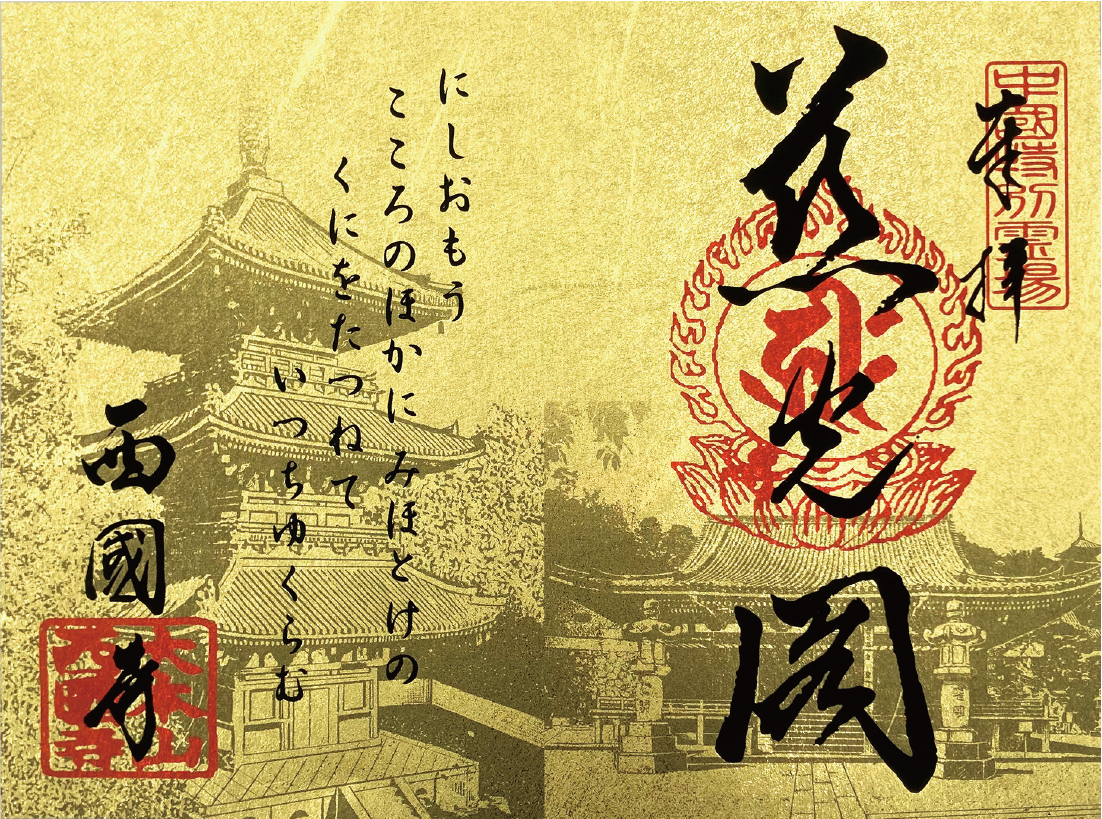 中國特別霊場
奉拝
慈光閣
にしおもう
こころのほかにみほとけの
くにをたつねて
いつちゆくらむ
西國寺
大本山
西國寺